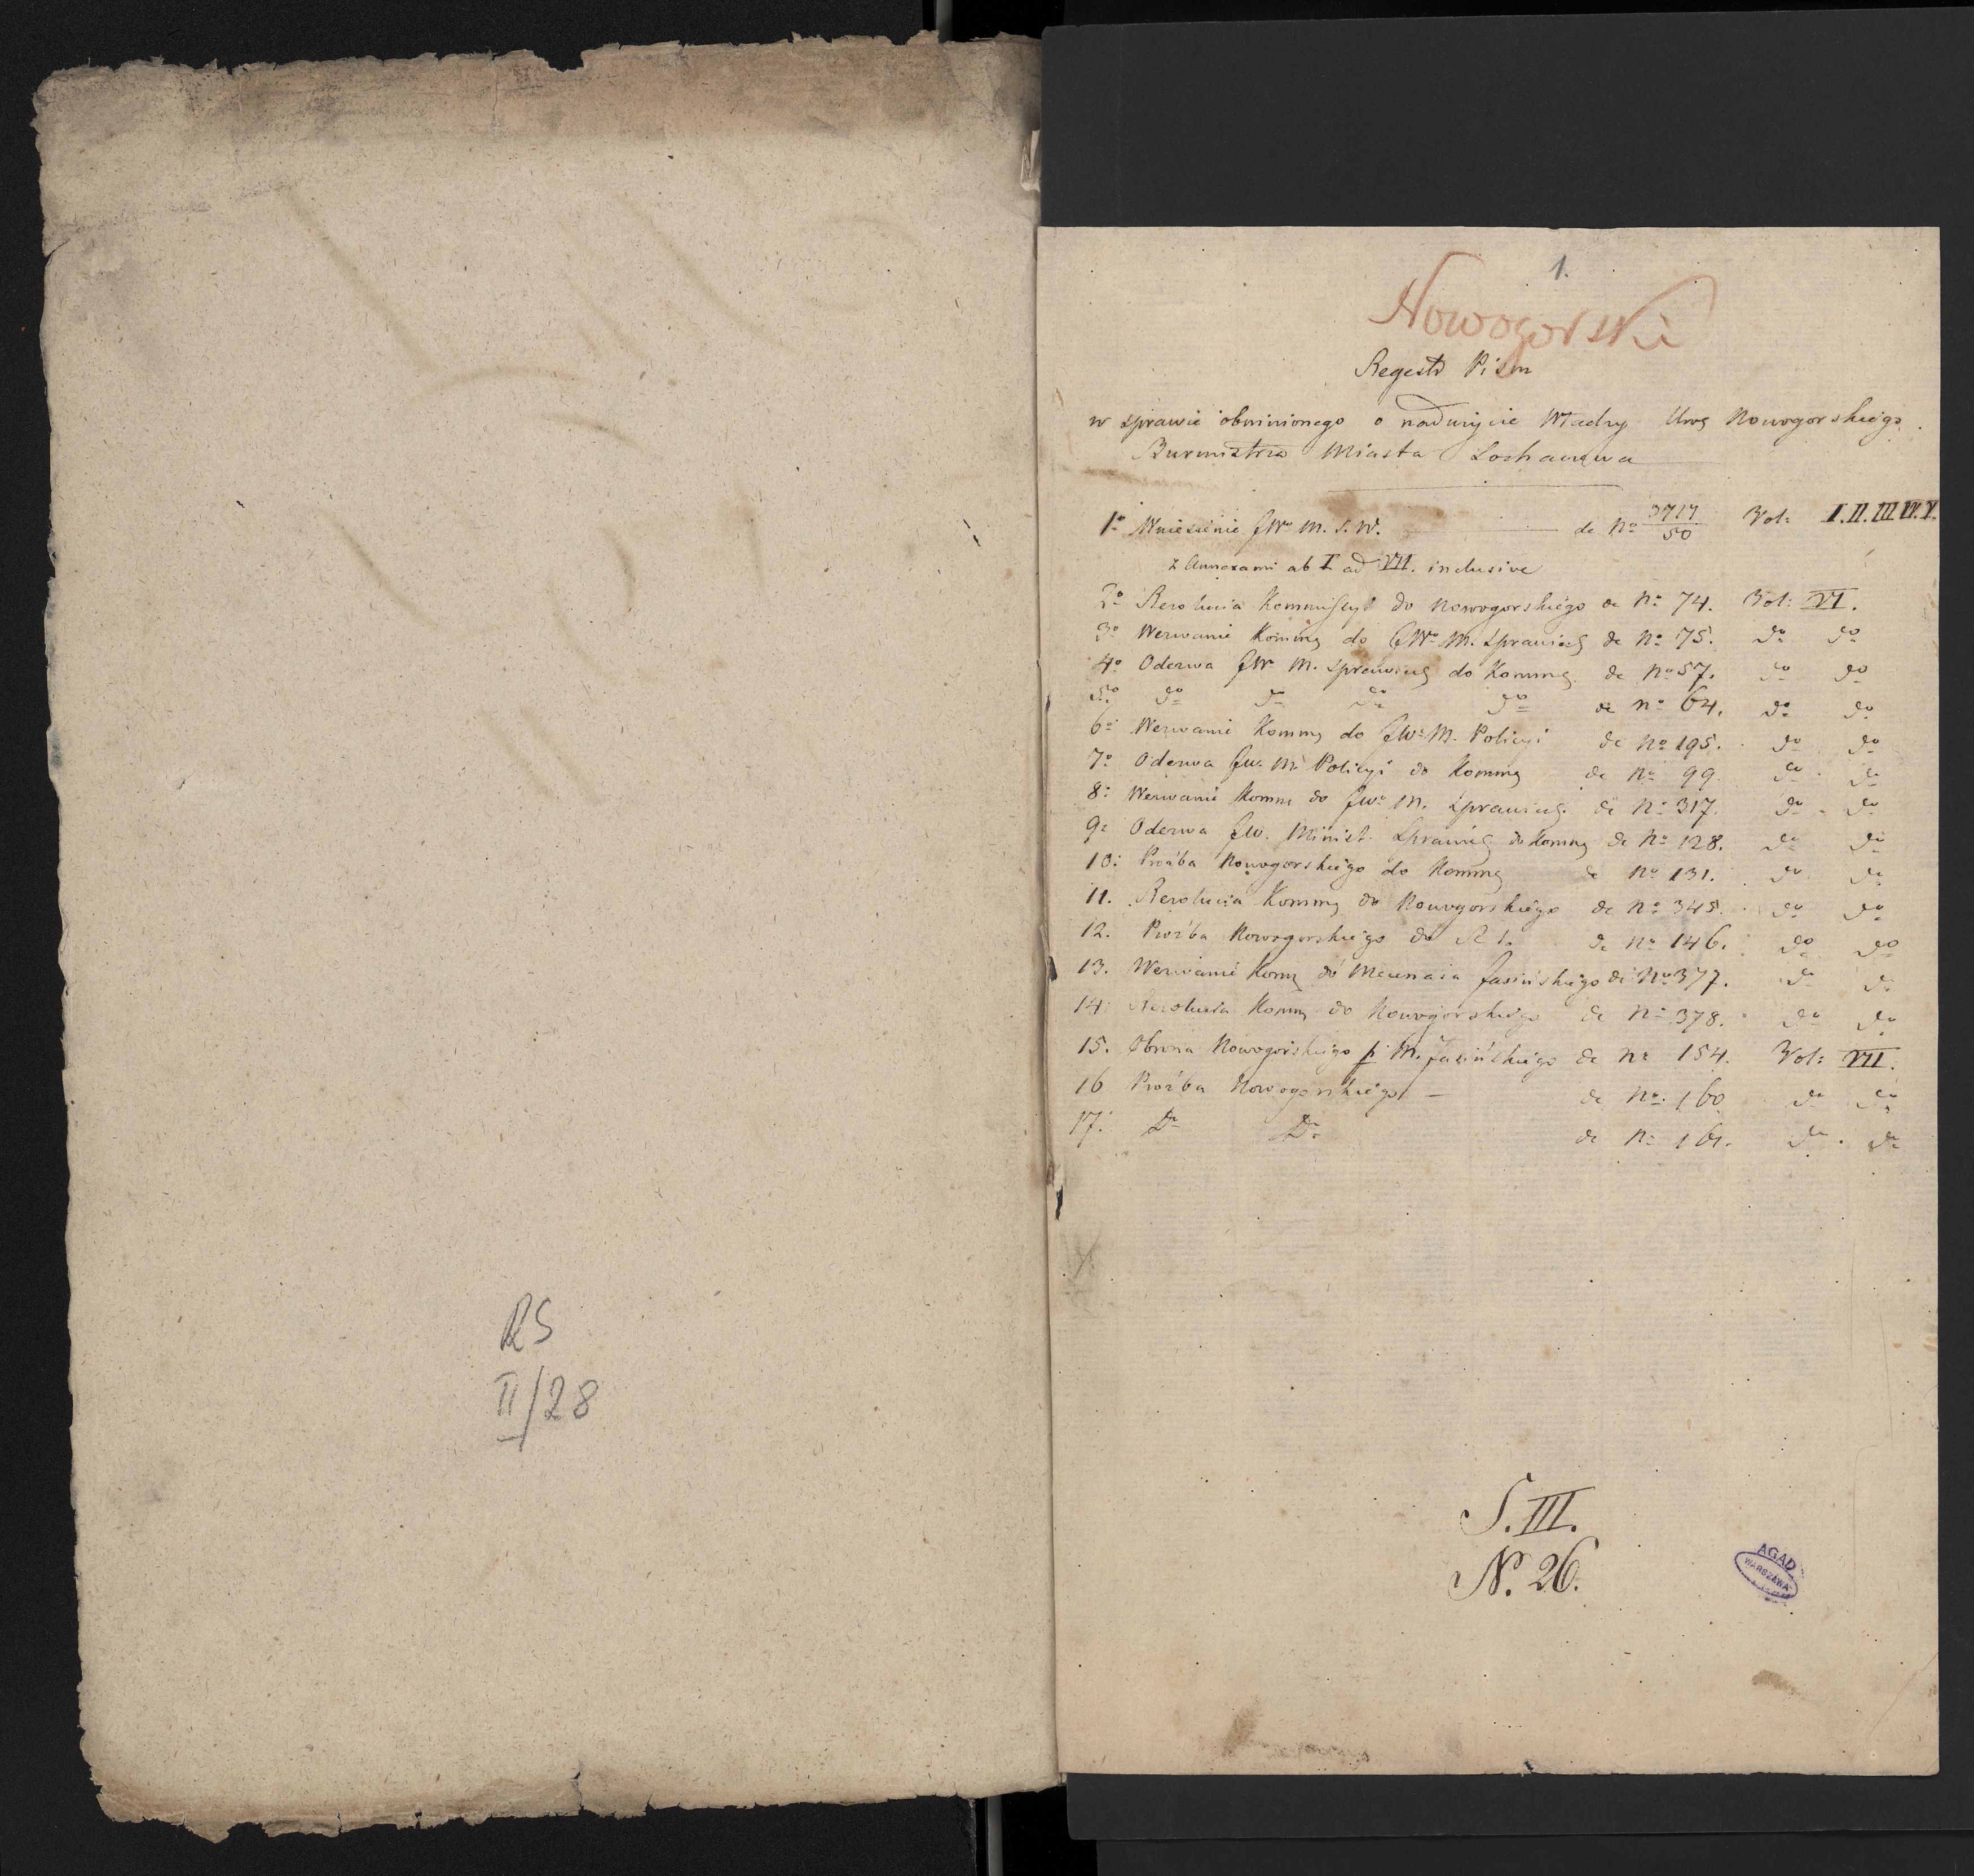 RS
II/28
1.
Nowogorski
Regestr Pism
w sprawie obwinionego o nadużycie Władzy Urog Nowogorskiego
Burmistrza Miasta Sochaczewa
1o Wniesienie JWo M. S. W. de No 3717/50 Vol: I. II. III. IV. V.
z Annexami ab I ad VII. inclusive
2o Rezolucia Kommissyi do Nowogorskiego de No 74. Vol: VI.
3o Wezwanie Kommy do JWo M. Sprawied de No 75. do do
4o Odezwa JWo M. Sprawied do Kommy. de No 57. do do
5o do do do do de No 64. do do
6o Wezwanie Kommy do JWo M. Policyi de No 195. do do
7o Odezwa JW. M. Policyi do Kommy de No 99 do do
8: Wezwanie Kommy do JWo M. Sprawied. de No 317. do do
9: Odezwa JW. Minist. Sprawied do Kommy de No 128. do do
10: Prożba Nowogorskiego do Kommy de No 131. do do
11. Rezolucia Kommy do Nowogorskiego de No 345. do do
12. Prożba Nowogorskiego do de No 146. do do
13. Wezwanie Komy do Mecenasa Jasińskiego de No 377. do do
14: Rezolucia Kommy do Nowogorskiego de No 378. do do
15. Obrona Nowogorskiego p M. Jasińskiego de No 154. Vol: VII.
16 Prożba Nowogorskiego — de No. 160 do do
17: Do Do de No 161. do do
S. III.
N. 26.
AGAD
WARSZAWA